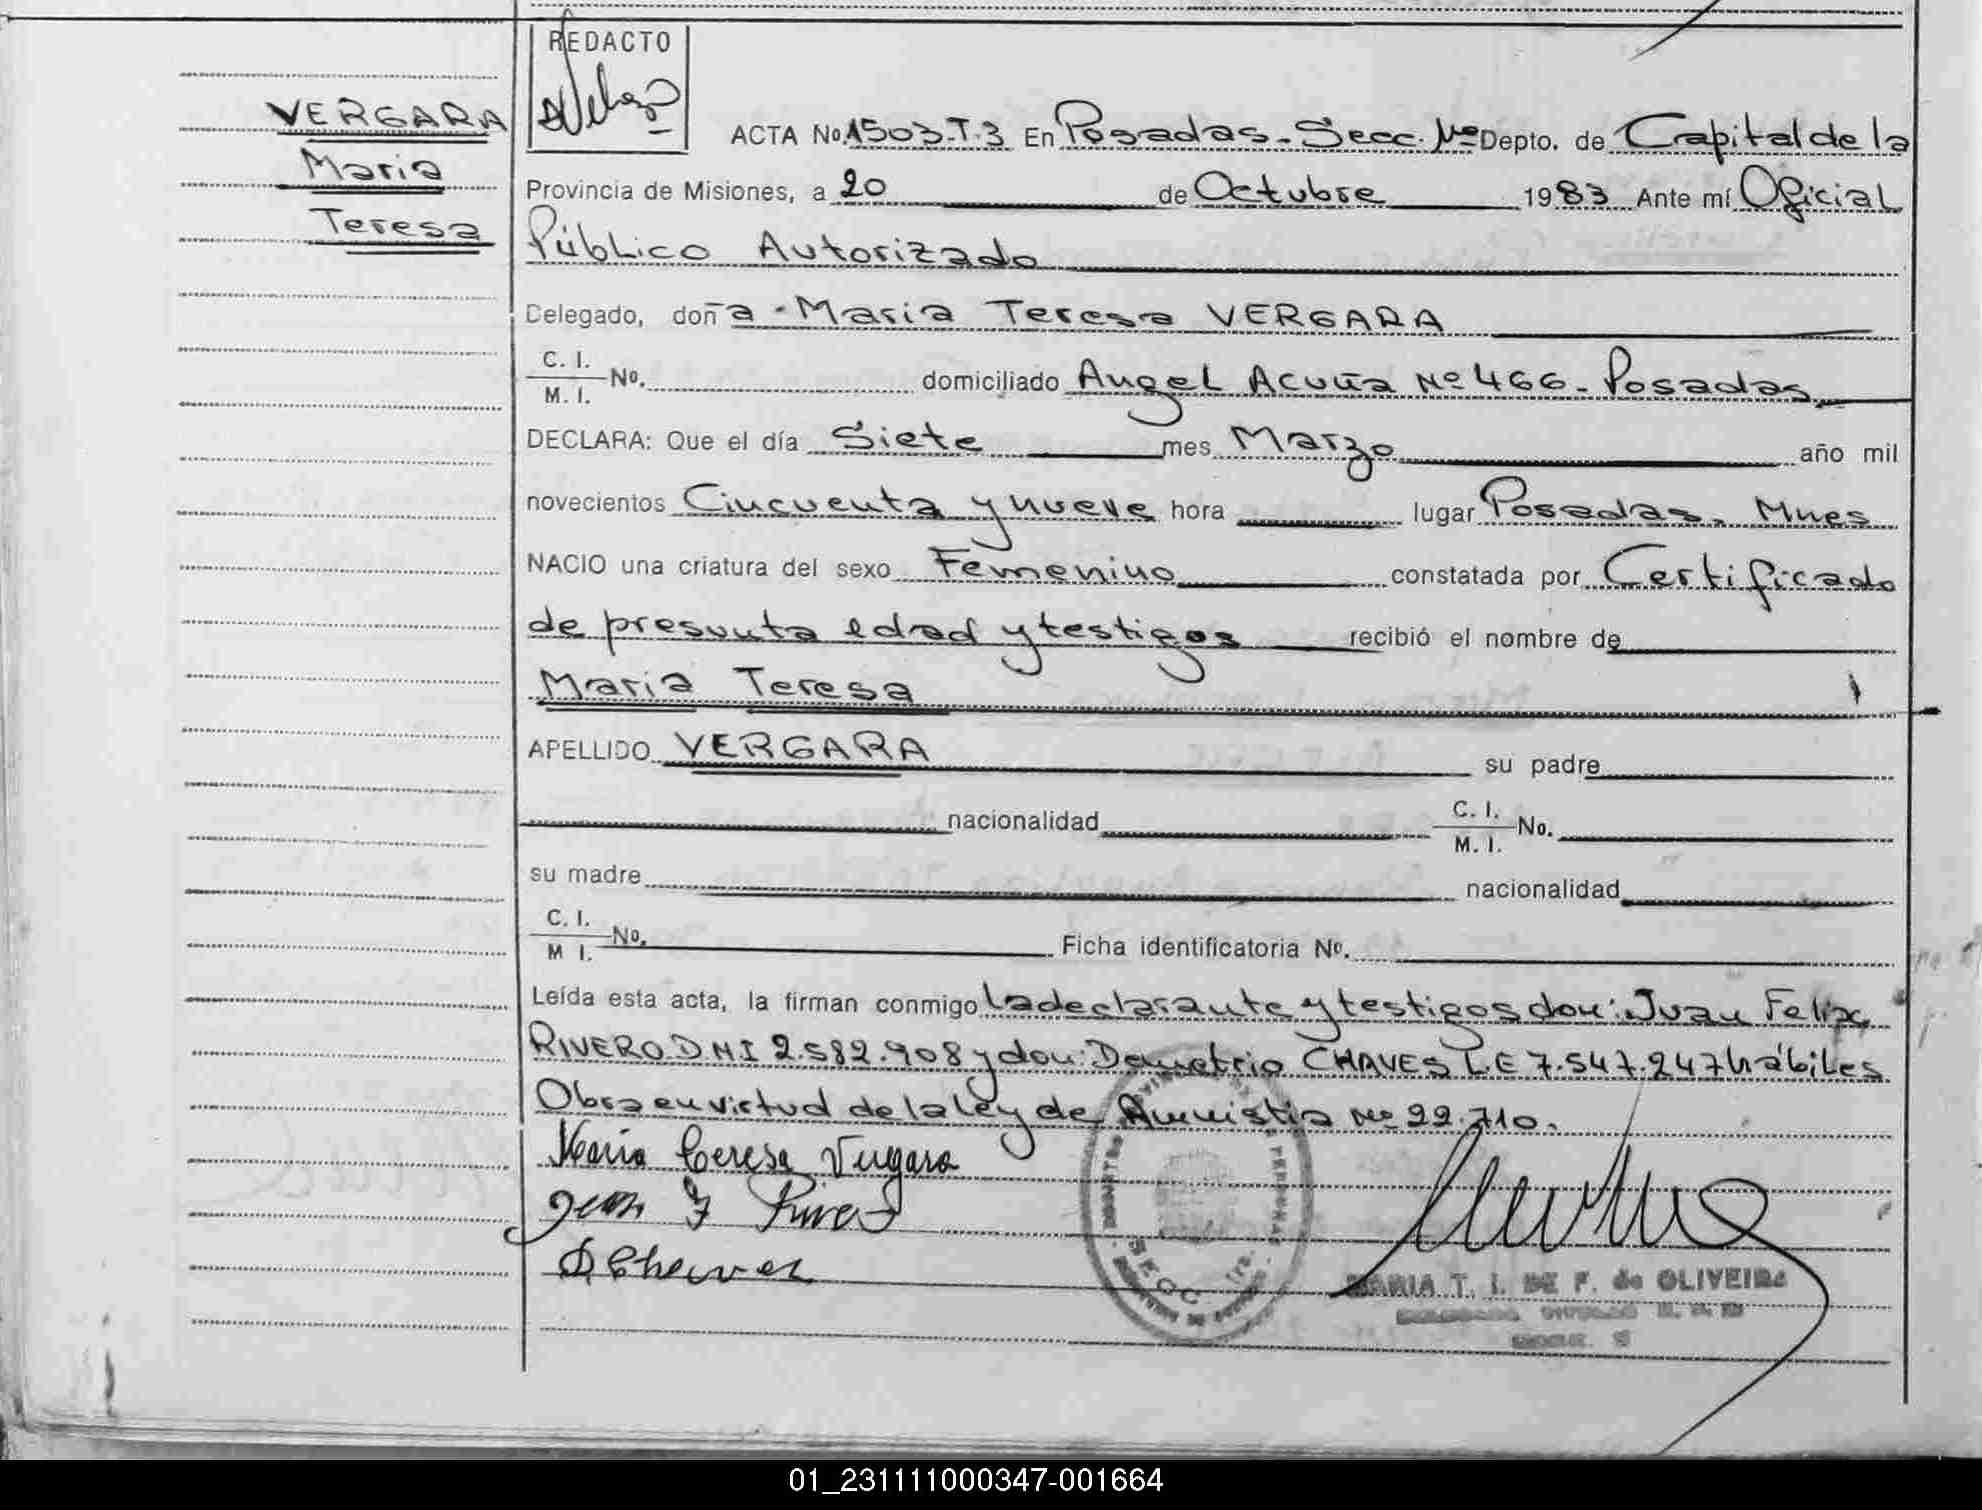 REDACTO
VERGARA
Maria
Teresa
ACTA No. 1503-T.3 En Posadas-Secc. 1ª Depto. de Capital de la
Provincia de Misiones, a 20 de Octubre 1983 Ante mí Oficial
Público Autorizado
Delegado, doña - Maria Teresa VERGARA
C. I.
M. I. No. domiciliado Angel Acuña Nº 466-Posadas
DECLARA: Que el día Siete mes Marzo año mil
novecientos Cincuenta y nueve hora lugar Posadas, Mnes
NACIO una criatura del sexo Femenino constatada por Certificado
de presunta edad y testigos recibió el nombre de
Maria Teresa
APELLIDO VERGARA su padre
nacionalidad C. I.
M. I. No.
su madre nacionalidad
C. I.
M I. No. Ficha identificatoria Nº.
Leída esta acta, la firman conmigo la declarante y testigos don: Juan Felix
RIVERO D.N.I 2.582.908 y don: Demetrio CHAVES L.E 7.547.247 hábiles
Obra en virtud de la ley de Amnistia Nº 22.710.
Maria Teresa Vergara
Juan F Rivero
D. Chavez
SECC. 1ra.
MARIA T. I. DE F. de OLIVEIRA
01_231111000347-001664